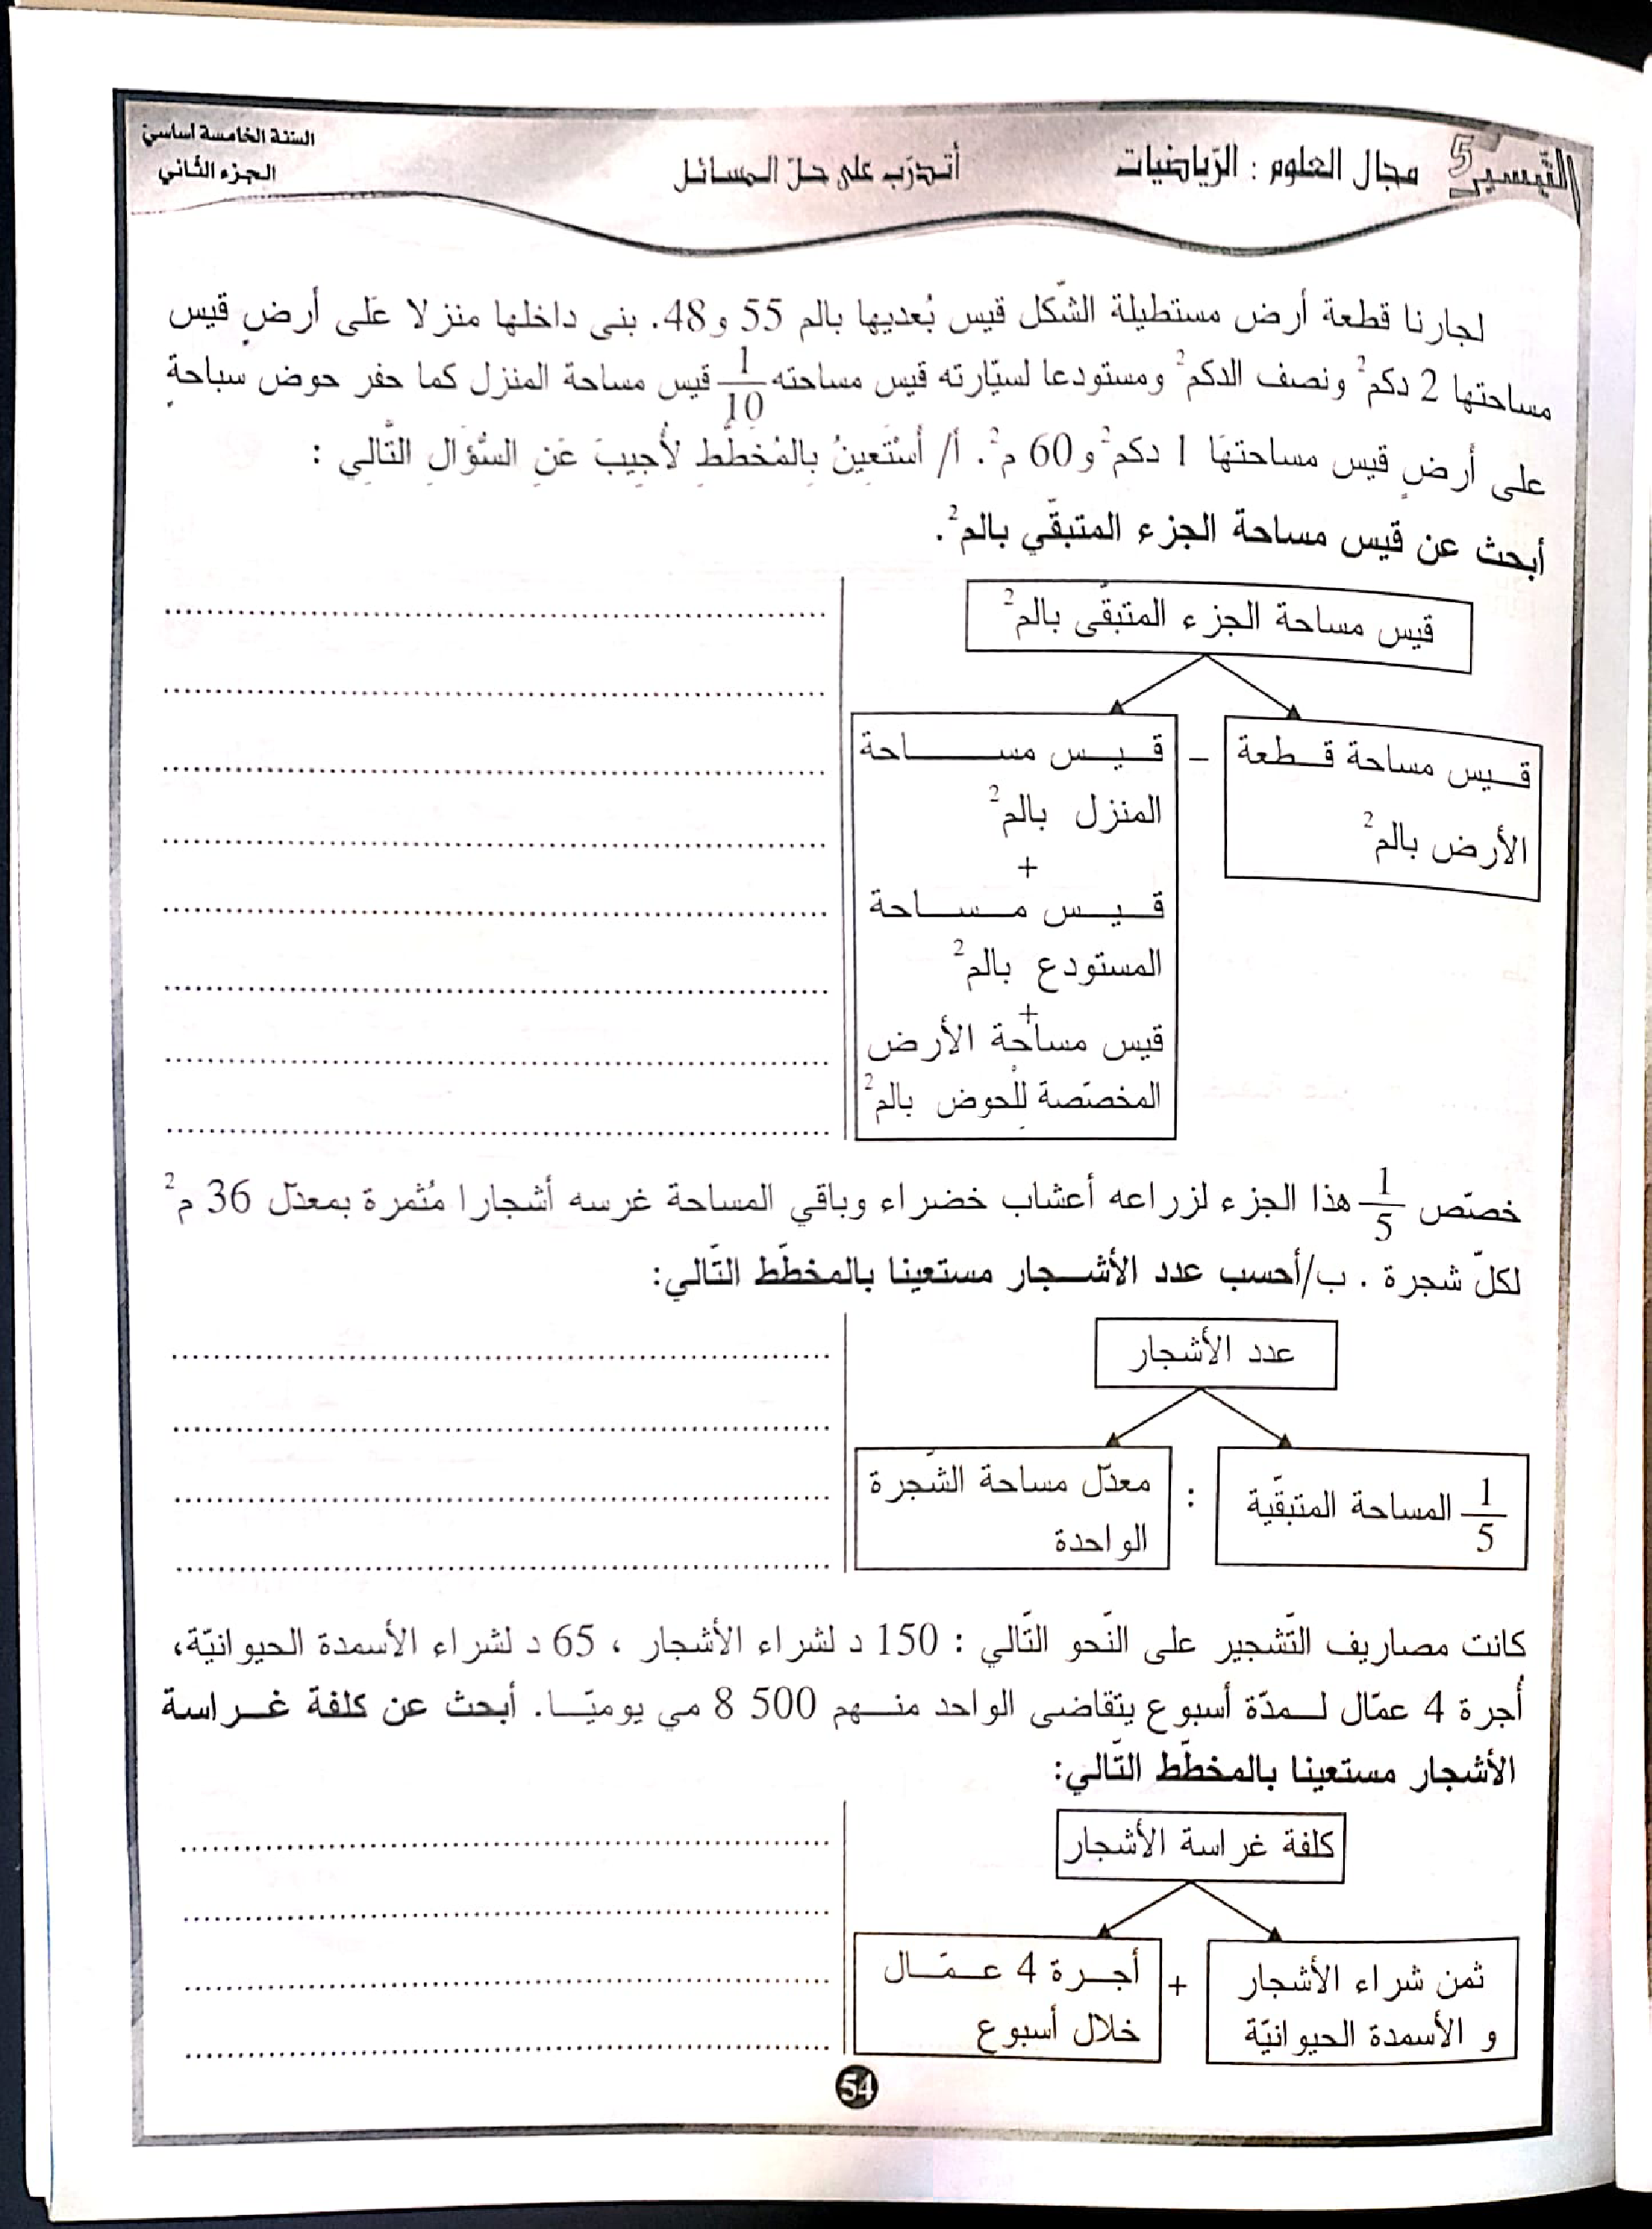 التّيسير 5 مجال العلوم : الرّياضيات أتدرّب على حلّ المسائل السّنة الخامسة أساسيّ
الجزء الثّاني
لجارنا قطعة أرض مستطيلة الشّكل قيس بُعديها بالم 55 و48. بنى داخلها منزلا على أرض قيس
مساحتها 2 دكم² ونصف الدكم² ومستودعا لسيّارته قيس مساحته 1/10 قيس مساحة المنزل كما حفر حوض سباحة
على أرض قيس مساحتها 1 دكم² و60 م². أ/ أَسْتَعِينُ بِالمُخَطَّطِ لأُجِيبَ عَنِ السُّؤَالِ التَّالِي :
أبحث عن قيس مساحة الجزء المتبقّي بالم².
قيس مساحة الجزء المتبقّى بالم²
قيس مساحة قطعة
الأرض بالم²
–
قيس مساحة
المنزل بالم²
+
قيس مساحة
المستودع بالم²
+
قيس مساحة الأرض
المخصّصة للحوض بالم²
خصّص 1/5 هذا الجزء لزراعه أعشاب خضراء وباقي المساحة غرسه أشجارا مُثمرة بمعدّل 36 م²
لكلّ شجرة . ب/أحسب عدد الأشجار مستعينا بالمخطّط التّالي:
عدد الأشجار
1/5 المساحة المتبقّية
:
معدّل مساحة الشّجرة
الواحدة
كانت مصاريف التّشجير على النّحو التّالي : 150 د لشراء الأشجار ، 65 د لشراء الأسمدة الحيوانيّة،
أُجرة 4 عمّال لمدّة أسبوع يتقاضى الواحد منهم 500 8 مي يوميّا. أبحث عن كلفة غراسة
الأشجار مستعينا بالمخطّط التّالي:
كلفة غراسة الأشجار
ثمن شراء الأشجار
و الأسمدة الحيوانيّة
+
أجرة 4 عمّال
خلال أسبوع
54